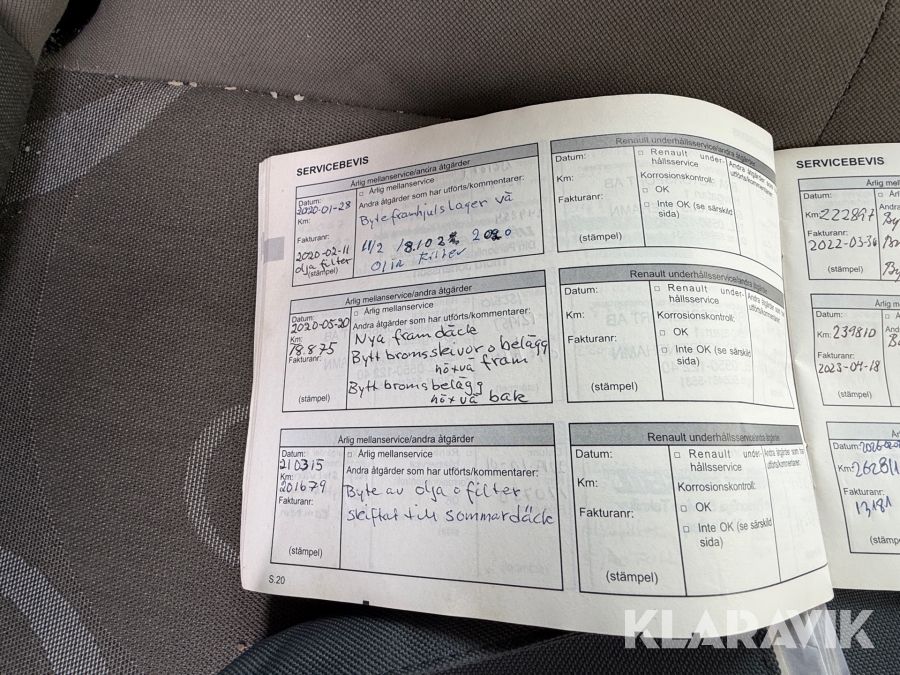 SERVICEBEVIS
Årlig mellanservice/andra åtgärder
Datum:
2020-01-28
Km:
Fakturanr:
2020-02-11
olja filter
(stämpel)
□ Årlig mellanservice
Andra åtgärder som har utförts/kommentarer:
Byte framhjulslager vä
11/2 2020
Olja Filter
Årlig mellanservice/andra åtgärder
Datum:
2020-05-20
Km:
18.875
Fakturanr:
(stämpel)
□ Årlig mellanservice
Andra åtgärder som har utförts/kommentarer:
Nya framdäck
Bytt bromsskivor o belägg
hö+vä fram
Bytt bromsbelägg
hö+vä bak
Årlig mellanservice/andra åtgärder
Datum:
210315
Km:
201679
Fakturanr:
(stämpel)
□ Årlig mellanservice
Andra åtgärder som har utförts/kommentarer:
Byte av olja o filter
skiftat till sommardäck
S.20
Renault underhållsservice/andra åtgärder
Datum:
Km:
Fakturanr:
(stämpel)
□ Renault under-
hållsservice
Korrosionskontroll:
□ OK
□ Inte OK (se särskild
sida)
Andra åtgärder som har
utförts/kommentarer:
Renault underhållsservice/andra åtgärder
Datum:
Km:
Fakturanr:
(stämpel)
□ Renault under-
hållsservice
Korrosionskontroll:
□ OK
□ Inte OK (se särskild
sida)
Andra åtgärder som har
utförts/kommentarer:
Renault underhållsservice/andra åtgärder
Datum:
Km:
Fakturanr:
(stämpel)
□ Renault under-
hållsservice
Korrosionskontroll:
□ OK
□ Inte OK (se särskild
sida)
Andra åtgärder som har
utförts/kommentarer:
SERVICEBEVIS
Datum:
Km: 222897
Fakturanr:
(stämpel)
Andra
Datum:
Km: 239810
Fakturanr:
2023-04-18
(stämpel)
Datum:
Km:
Fakturanr:
KLARAVIK